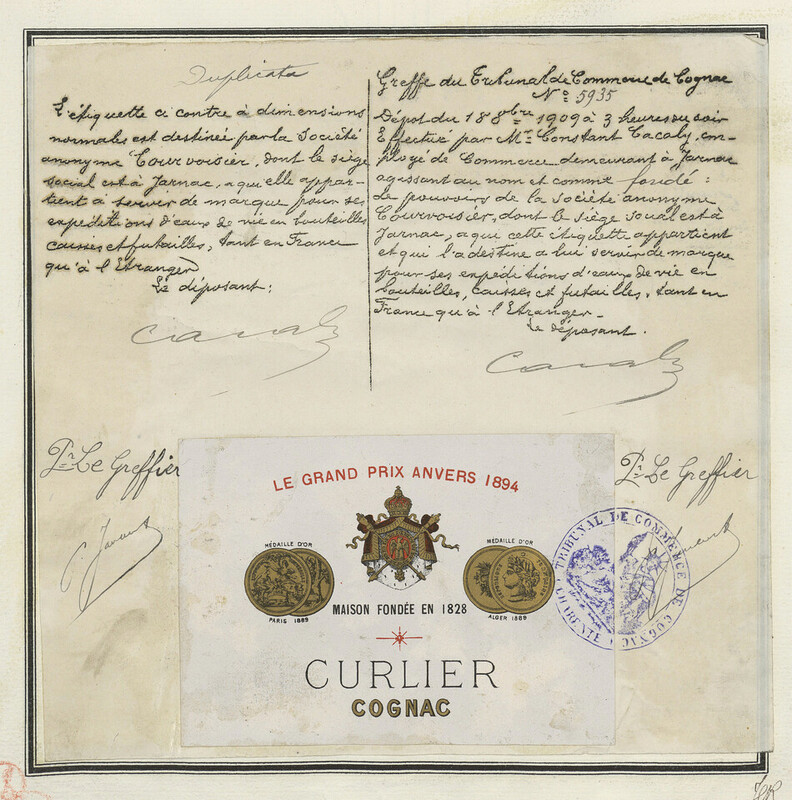 Duplicata
L'étiquette ci contre à dimensions
normales est destinée par la Société
anonyme Courvoisier, dont le siège
social est à Jarnac, a qu'elle appar-
tient à server de marque pour ses
expéditions d'eaux de vie en bouteilles
caisses et futailles, tant en France
qu'à l'Etranger
Le déposant:
Greffe du Tribunal de Commerce de Cognac
No 5935
Dépot du 18 8bre 1909 à 3 heures du soir
Effectué par Mr Constant Cacaly, em-
ployé de Commerce demeurant à Jarnac
agissant au nom et comme fondé :
de pouvoirs de la Société anonyme
Courvoisier, dont le siège social est à
Jarnac, a qui cette étiquette appartient
et qui l'a destine a lui servir de marque
pour ses expéditions d'eaux de vie en
bouteilles, caisses et futailles, tant en
France qu'à l'Etranger-
Le déposant.
Pr Le Greffier
Pr Le Greffier
LE GRAND PRIX ANVERS 1894
MÉDAILLE D'OR
PARIS 1889
MÉDAILLE D'OR
ALGER 1889
MAISON FONDÉE EN 1828
CURLIER
COGNAC
TRIBUNAL DE COMMERCE DE COGNAC
CHARENTE